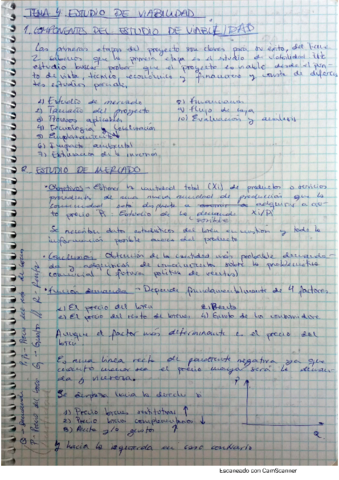 TEMA 4 ESTUDIO DE VIABILIDAD
1. COMPONENTES DEL ESTUDIO DE VIABILIDAD
Las primeras etapas del proyecto son claves para su éxito, del tema
2 sabemos que la primera etapa es el estudio de viabilidad. Un
estudio busca probar que el proyecto es viable desde el pun-
to de vista, técnico, económico y financiero y consta de diferen-
tes estudios parciales
1) Estudio de mercado
2) Tamaño del proyecto
3) Procesos aplicables
4) Tecnología
5) Emplazamiento
6) Impacto ambiental
7) Estimación de la inversión
8) Financiación
9) Flujo de caja
10) Evaluación y análisis
ESTUDIO DE MERCADO
• Objetivos - Estimar la cantidad total (Xi) de productos o servicios
procedentes de una nueva unidad de producción que la
comunidad está dispuesta a adquirir a cier-
to precio P.
Se necesitan datos estadísticos del bien en cuestión y toda la
información posible acerca del producto
• Conclusiones: Obtención de la cantidad más probable demanda-
da y
comercial (futura política de ventas)
• Función demanda - Depende fundamentalmente de 4 factores
1) El precio del bien
2) Renta
3) El precio del resto de bienes
4) Gusto de los consumidores
Aunque el factor más determinante es el precio del
bien
Es una línea recta de pendiente negativa ya que
cuanto mayor sea el precio menor será la deman-
da y viceversa.
Se desplaza hacia la derecha si
1) Precio bienes sustitutivos ↑
2) Precio bienes complementarios ↓
3) Renta y/o gustos ↑
y hacia la izquierda en caso contrario
Q
Q - Demanda
P - Precio del bien
G - Gustos
R - Renta
Escaneado con CamScanner